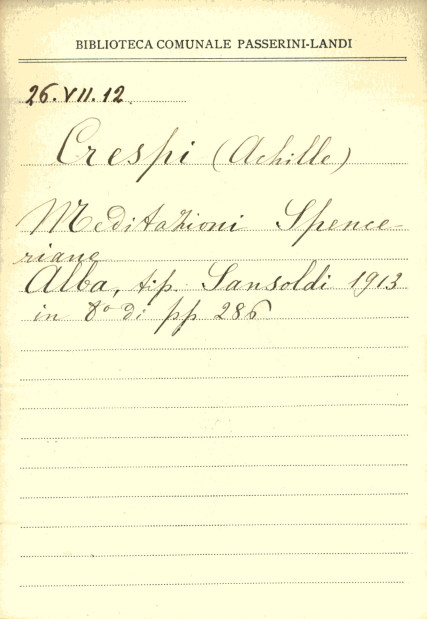 BIBLIOTECA COMUNALE PASSERINI-LANDI
26.VII.12.
Crespi (Achille)
Meditazioni Spence-
riane
Alba, tip. Sansoldi 1913
in 8° di pp 286